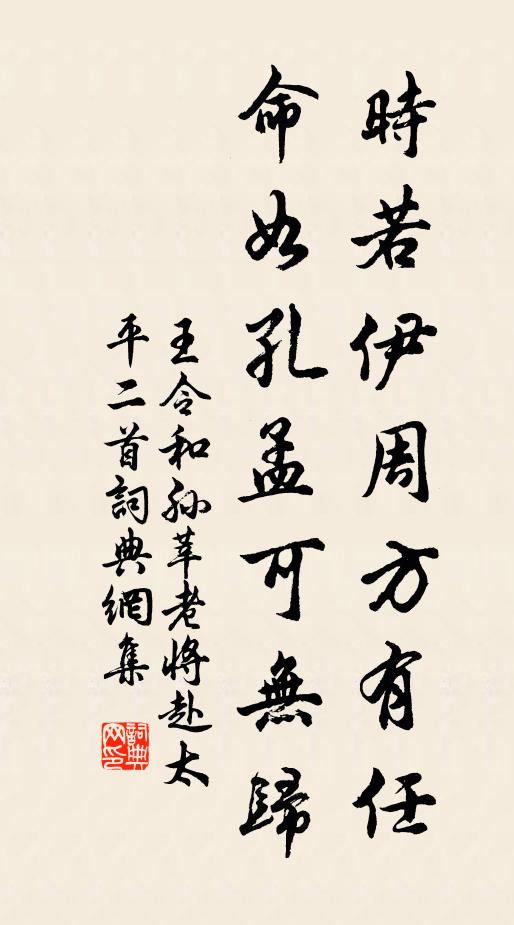 時若伊周方有任
命如孔孟可無歸
王令和孙莘老將赴太
平二首詞典網集
詞典
网印